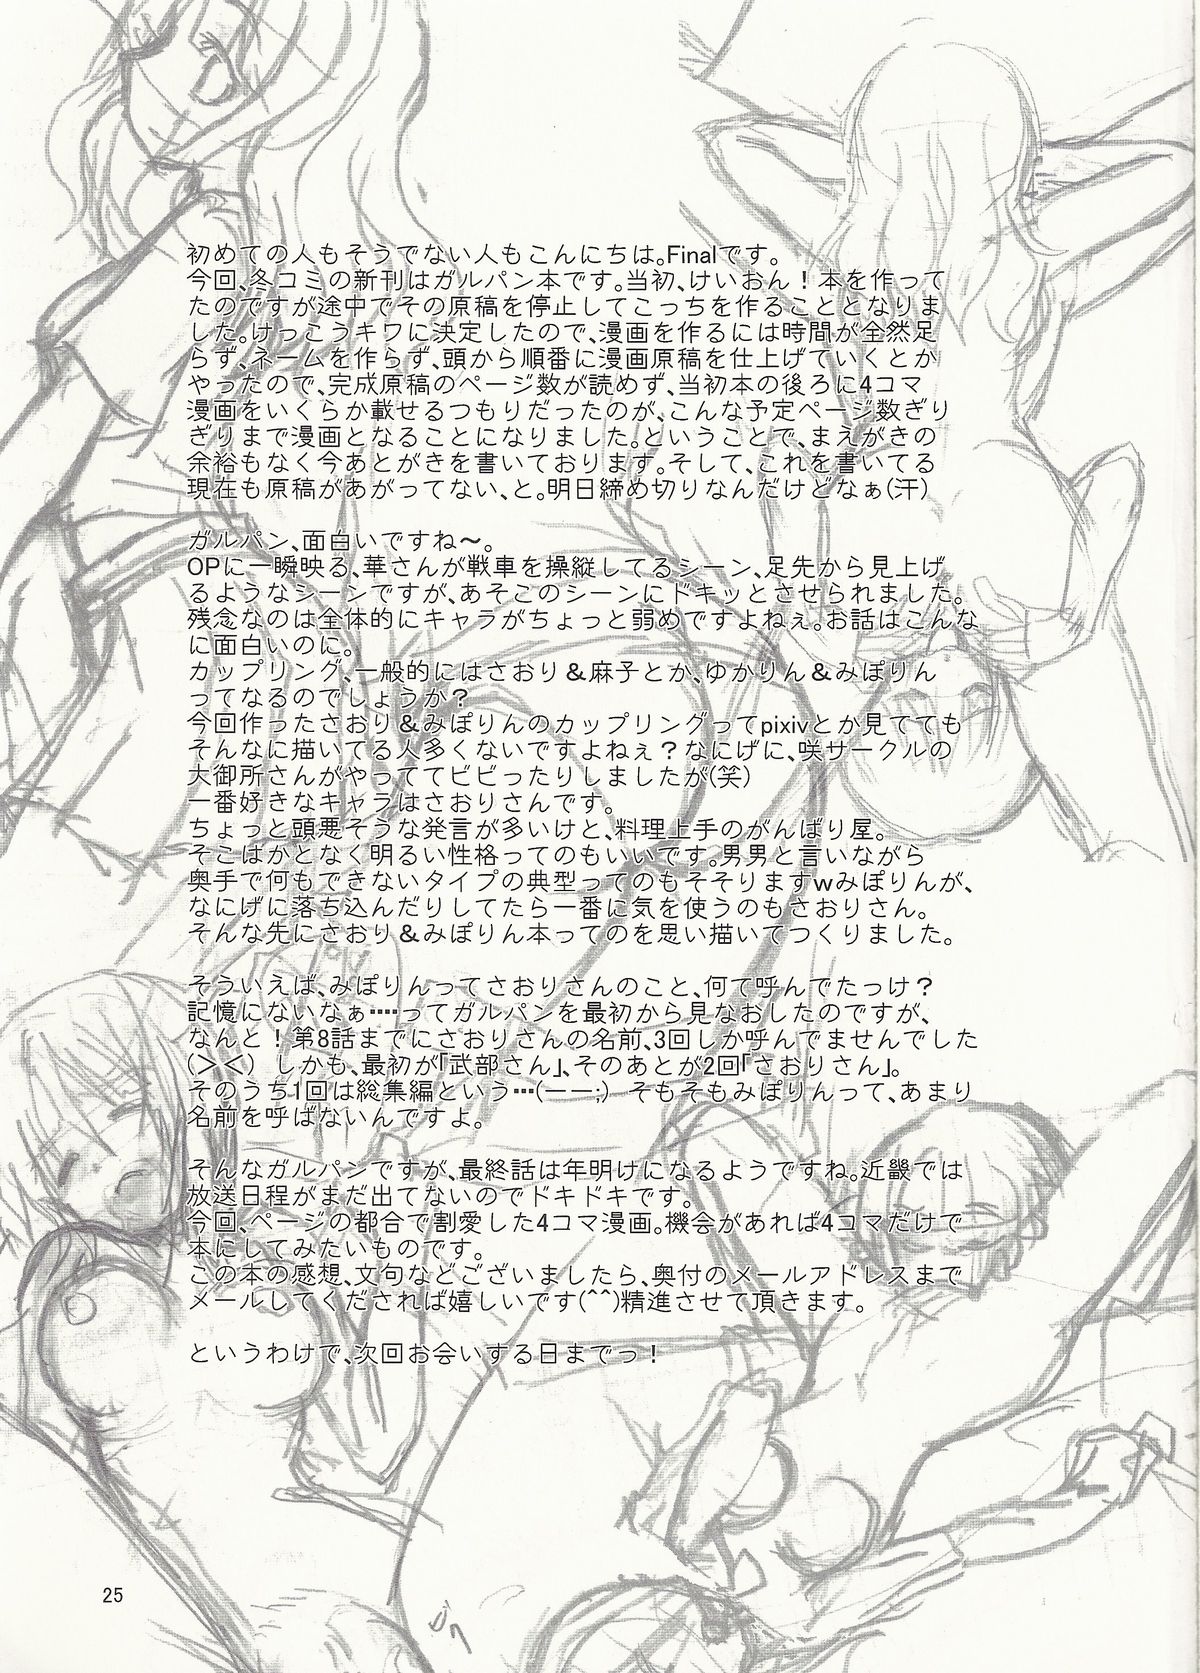 初めての人もそうでない人もこんにちは。Finalです。
今回、冬コミの新刊はガルパン本です。当初、けいおん！本を作って
たのですが途中でその原稿を停止してこっちを作ることとなりま
した。けっこうキワに決定したので、漫画を作るには時間が全然足
らず、ネームを作らず、頭から順番に漫画原稿を仕上げていくとか
やったので、完成原稿のページ数が読めず、当初本の後ろに4コマ
漫画をいくらか載せるつもりだったのが、こんな予定ページ数ぎり
ぎりまで漫画となることになりました。ということで、まえがきの
余裕もなく今あとがきを書いております。そして、これを書いてる
現在も原稿があがってない、と。明日締め切りなんだけどなぁ(汗)
ガルパン、面白いですね～。
OPに一瞬映る、華さんが戦車を操縦してるシーン、足先から見上げ
るようなシーンですが、あそこのシーンにドキッとさせられました。
残念なのは全体的にキャラがちょっと弱めですよねぇ。お話はこんな
に面白いのに。
カップリング、一般的にはさおり＆麻子とか、ゆかりん＆みぽりん
ってなるのでしょうか？
今回作ったさおり＆みぽりんのカップリングってpixivとか見てても
そんなに描いてる人多くないですよねぇ？なにげに、咲サークルの
大御所さんがやっててビビったりしましたが(笑)
一番好きなキャラはさおりさんです。
ちょっと頭悪そうな発言が多いけと、料理上手のがんばり屋。
そこはかとなく明るい性格ってのもいいです。男男と言いながら
奥手で何もできないタイプの典型ってのもそそりますwみぽりんが、
なにげに落ち込んだりしてたら一番に気を使うのもさおりさん。
そんな先にさおり＆みぽりん本ってのを思い描いてつくりました。
そういえば、みぽりんってさおりさんのこと、何て呼んでたっけ？
記憶にないなぁ‥‥ってガルパンを最初から見なおしたのですが、
なんと！第8話までにさおりさんの名前、3回しか呼んでませんでした
(＞＜)　しかも、最初が｢武部さん｣、そのあとが2回｢さおりさん｣。
そのうち1回は総集編という…(ーー;)　そもそもみぽりんって、あまり
名前を呼ばないんですよ。
そんなガルパンですが、最終話は年明けになるようですね。近畿では
放送日程がまだ出てないのでドキドキです。
今回、ページの都合で割愛した4コマ漫画。機会があれば4コマだけで
本にしてみたいものです。
この本の感想、文句などございましたら、奥付のメールアドレスまで
メールしてくだされば嬉しいです(^^)精進させて頂きます。
というわけで、次回お会いする日までっ！
25
ビク